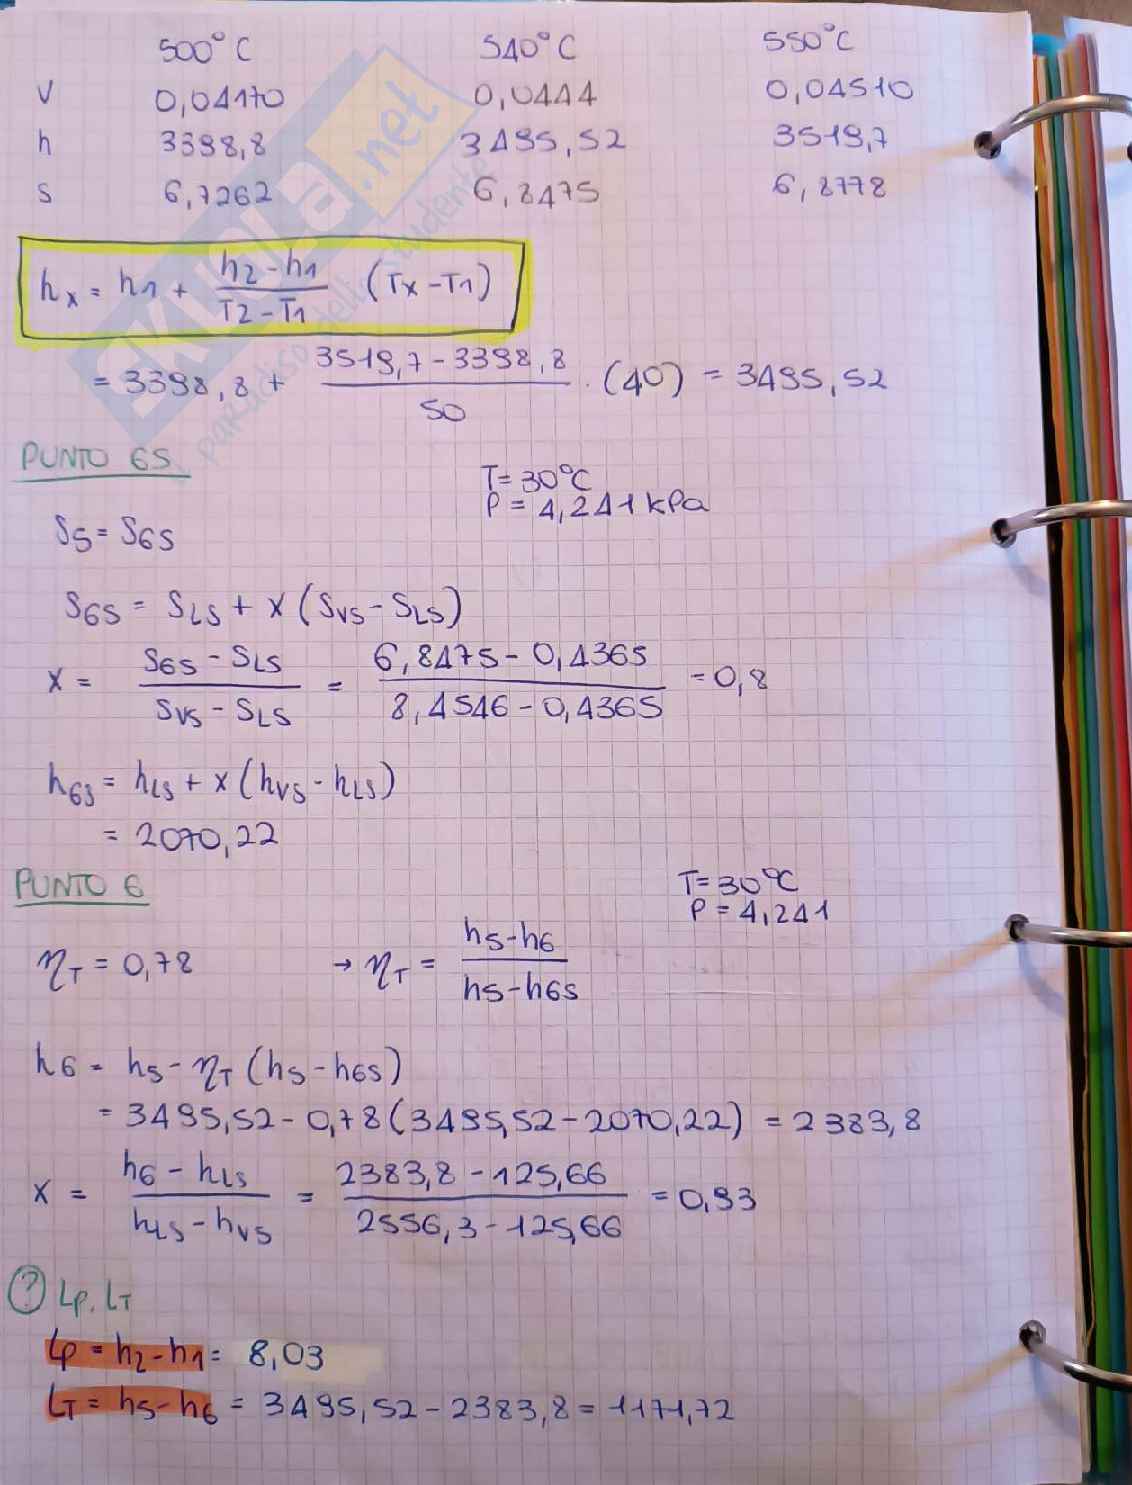 500°C 540°C 550°C
v 0,04170 0,0444 0,04510
h 3398,8 3495,52 3519,7
s 6,7262 6,8475 6,8778
hx = h1 + (h2 - h1)/(T2 - T1) (Tx - T1)
= 3398,8 + (3519,7 - 3398,8)/50 · (40) = 3495,52
PUNTO 6S
T = 30°C
P = 4,241 kPa
S5 = S6S
S6S = SLS + x (SVS - SLS)
x = (S6S - SLS)/(SVS - SLS) = (6,8475 - 0,4365)/(8,4546 - 0,4365) = 0,8
h6S = hLS + x (hVS - hLS)
= 2070,22
PUNTO 6
T = 30°C
P = 4,241
ηT = 0,78 → ηT = (h5 - h6)/(h5 - h6S)
h6 = h5 - ηT (h5 - h6S)
= 3495,52 - 0,78 (3495,52 - 2070,22) = 2383,8
x = (h6 - hLS)/(hLS - hVS) = (2383,8 - 125,66)/(2556,3 - 125,66) = 0,93
? LP, LT
LP = h2 - h1 = 8,03
LT = h5 - h6 = 3495,52 - 2383,8 = 1171,72
SKUOLA.net
paradiso dello studente